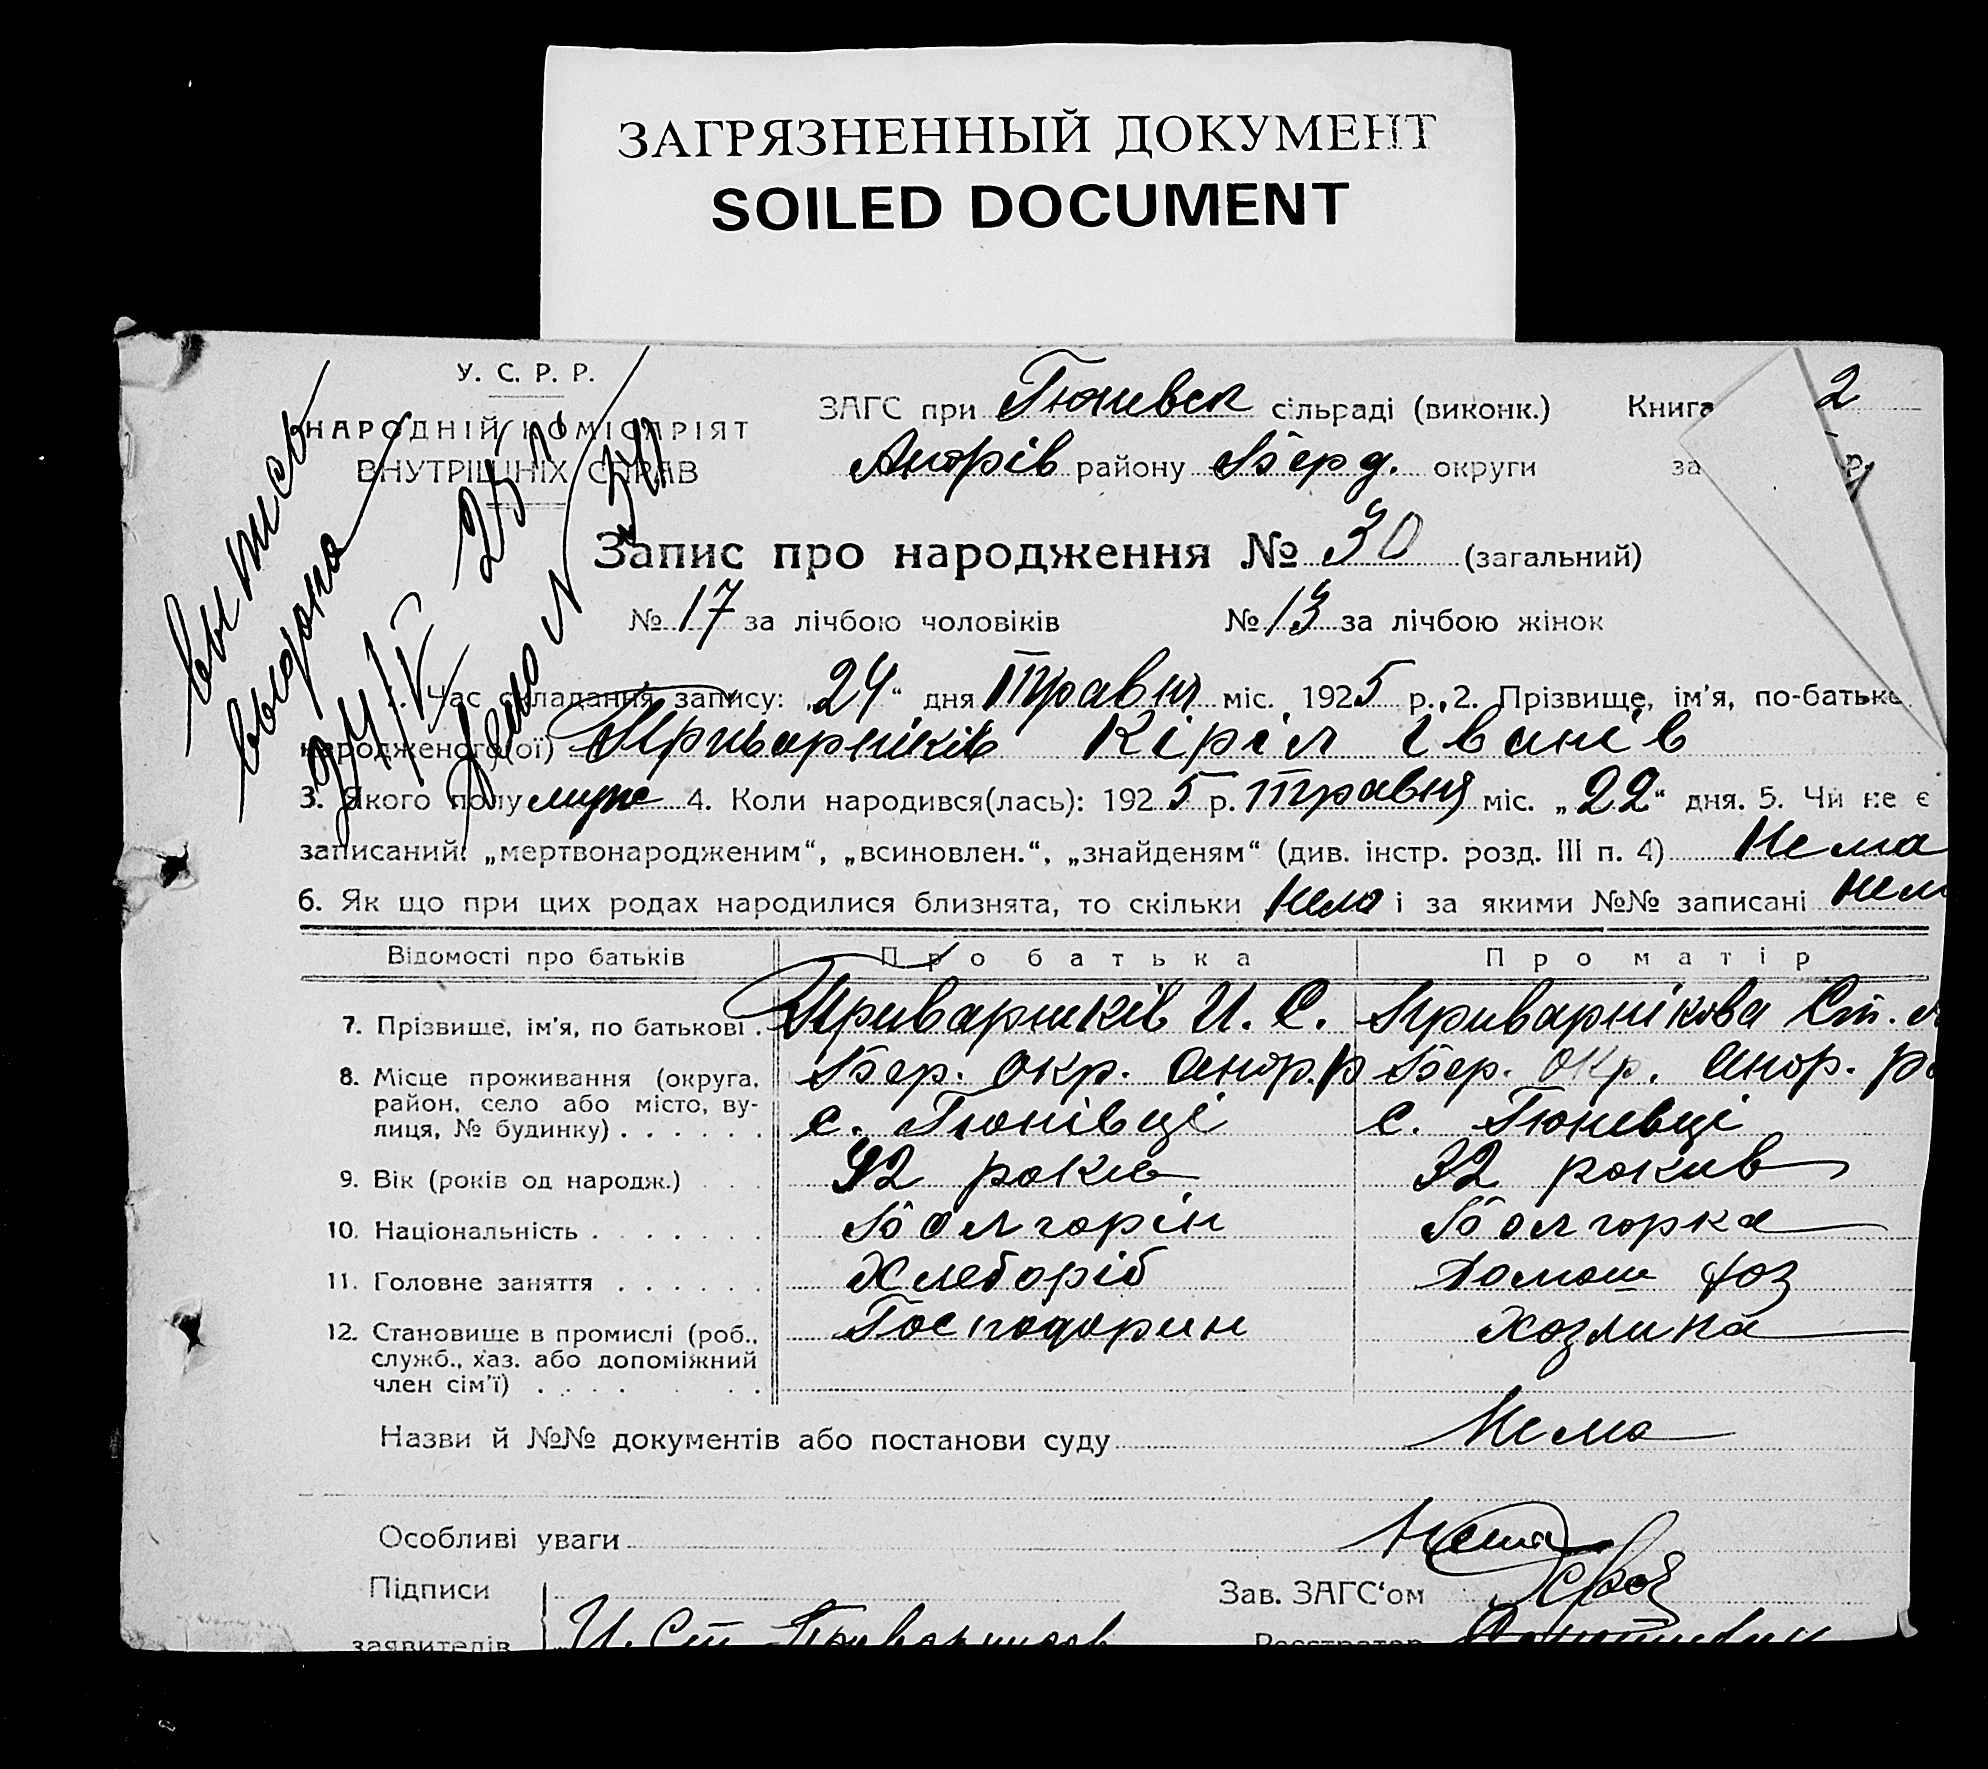 ЗАГРЯЗНЕННЫЙ ДОКУМЕНТ
SOILED DOCUMENT
У. С. Р. Р.
НАРОДНІЙ КОМІСАРІЯТ
ВНУТРІШНІХ СПРАВ
ЗАГС при Гюневск сільраді (виконк.) Книга 2
Андрів району Берд. округи за р.
выпись
выдана
24/V 25
Запис про народження № 30 (загальний)
№ 17 за лічбою чоловіків № 13 за лічбою жінок
1. Час складання запису: „24“ дня Травня міс. 1925 р. 2. Прізвище, ім'я, по-батько
народженого(ої) Приварніків Кіріл Іванів
3. Якого полу муже 4. Коли народився(лась): 1925 р. Травня міс. „22“ дня. 5. Чи не є
записаний: „мертвонародженим“, „всиновлен.“, „знайденям“ (див. інстр. розд. III п. 4) Нема
6. Як що при цих родах народилися близнята, то скільки Нема і за якими №№ записані Нем
Відомості про батьків Про батька Про матір
7. Прізвище, ім'я, по батькові . Приварніків И. С. Приварнікова Ст.
8. Місце проживання (округа, Бер. Окр. Андр. р Бер. Окр. Андр. р
район, село або місто, ву- с. Гюнівці с. Гюневці
лиця, № будинку) . . . . . .
9. Вік (років од народж.) . . . 42 років 32 років
10. Національність . . . . . . . Болгарін Болгарка
11. Головне заняття . . . . . . Хлеборіб Домаш хоз
12. Становище в промислі (роб., Господарин Хозяина
служб., хаз. або допоміжний
член сім'ї) . . . . . . .
Назви й №№ документів або постанови суду Нема
Особливі уваги Нема
Підписи Зав. ЗАГС'ом
заявителів И. Ст. Приварников Реєстратор